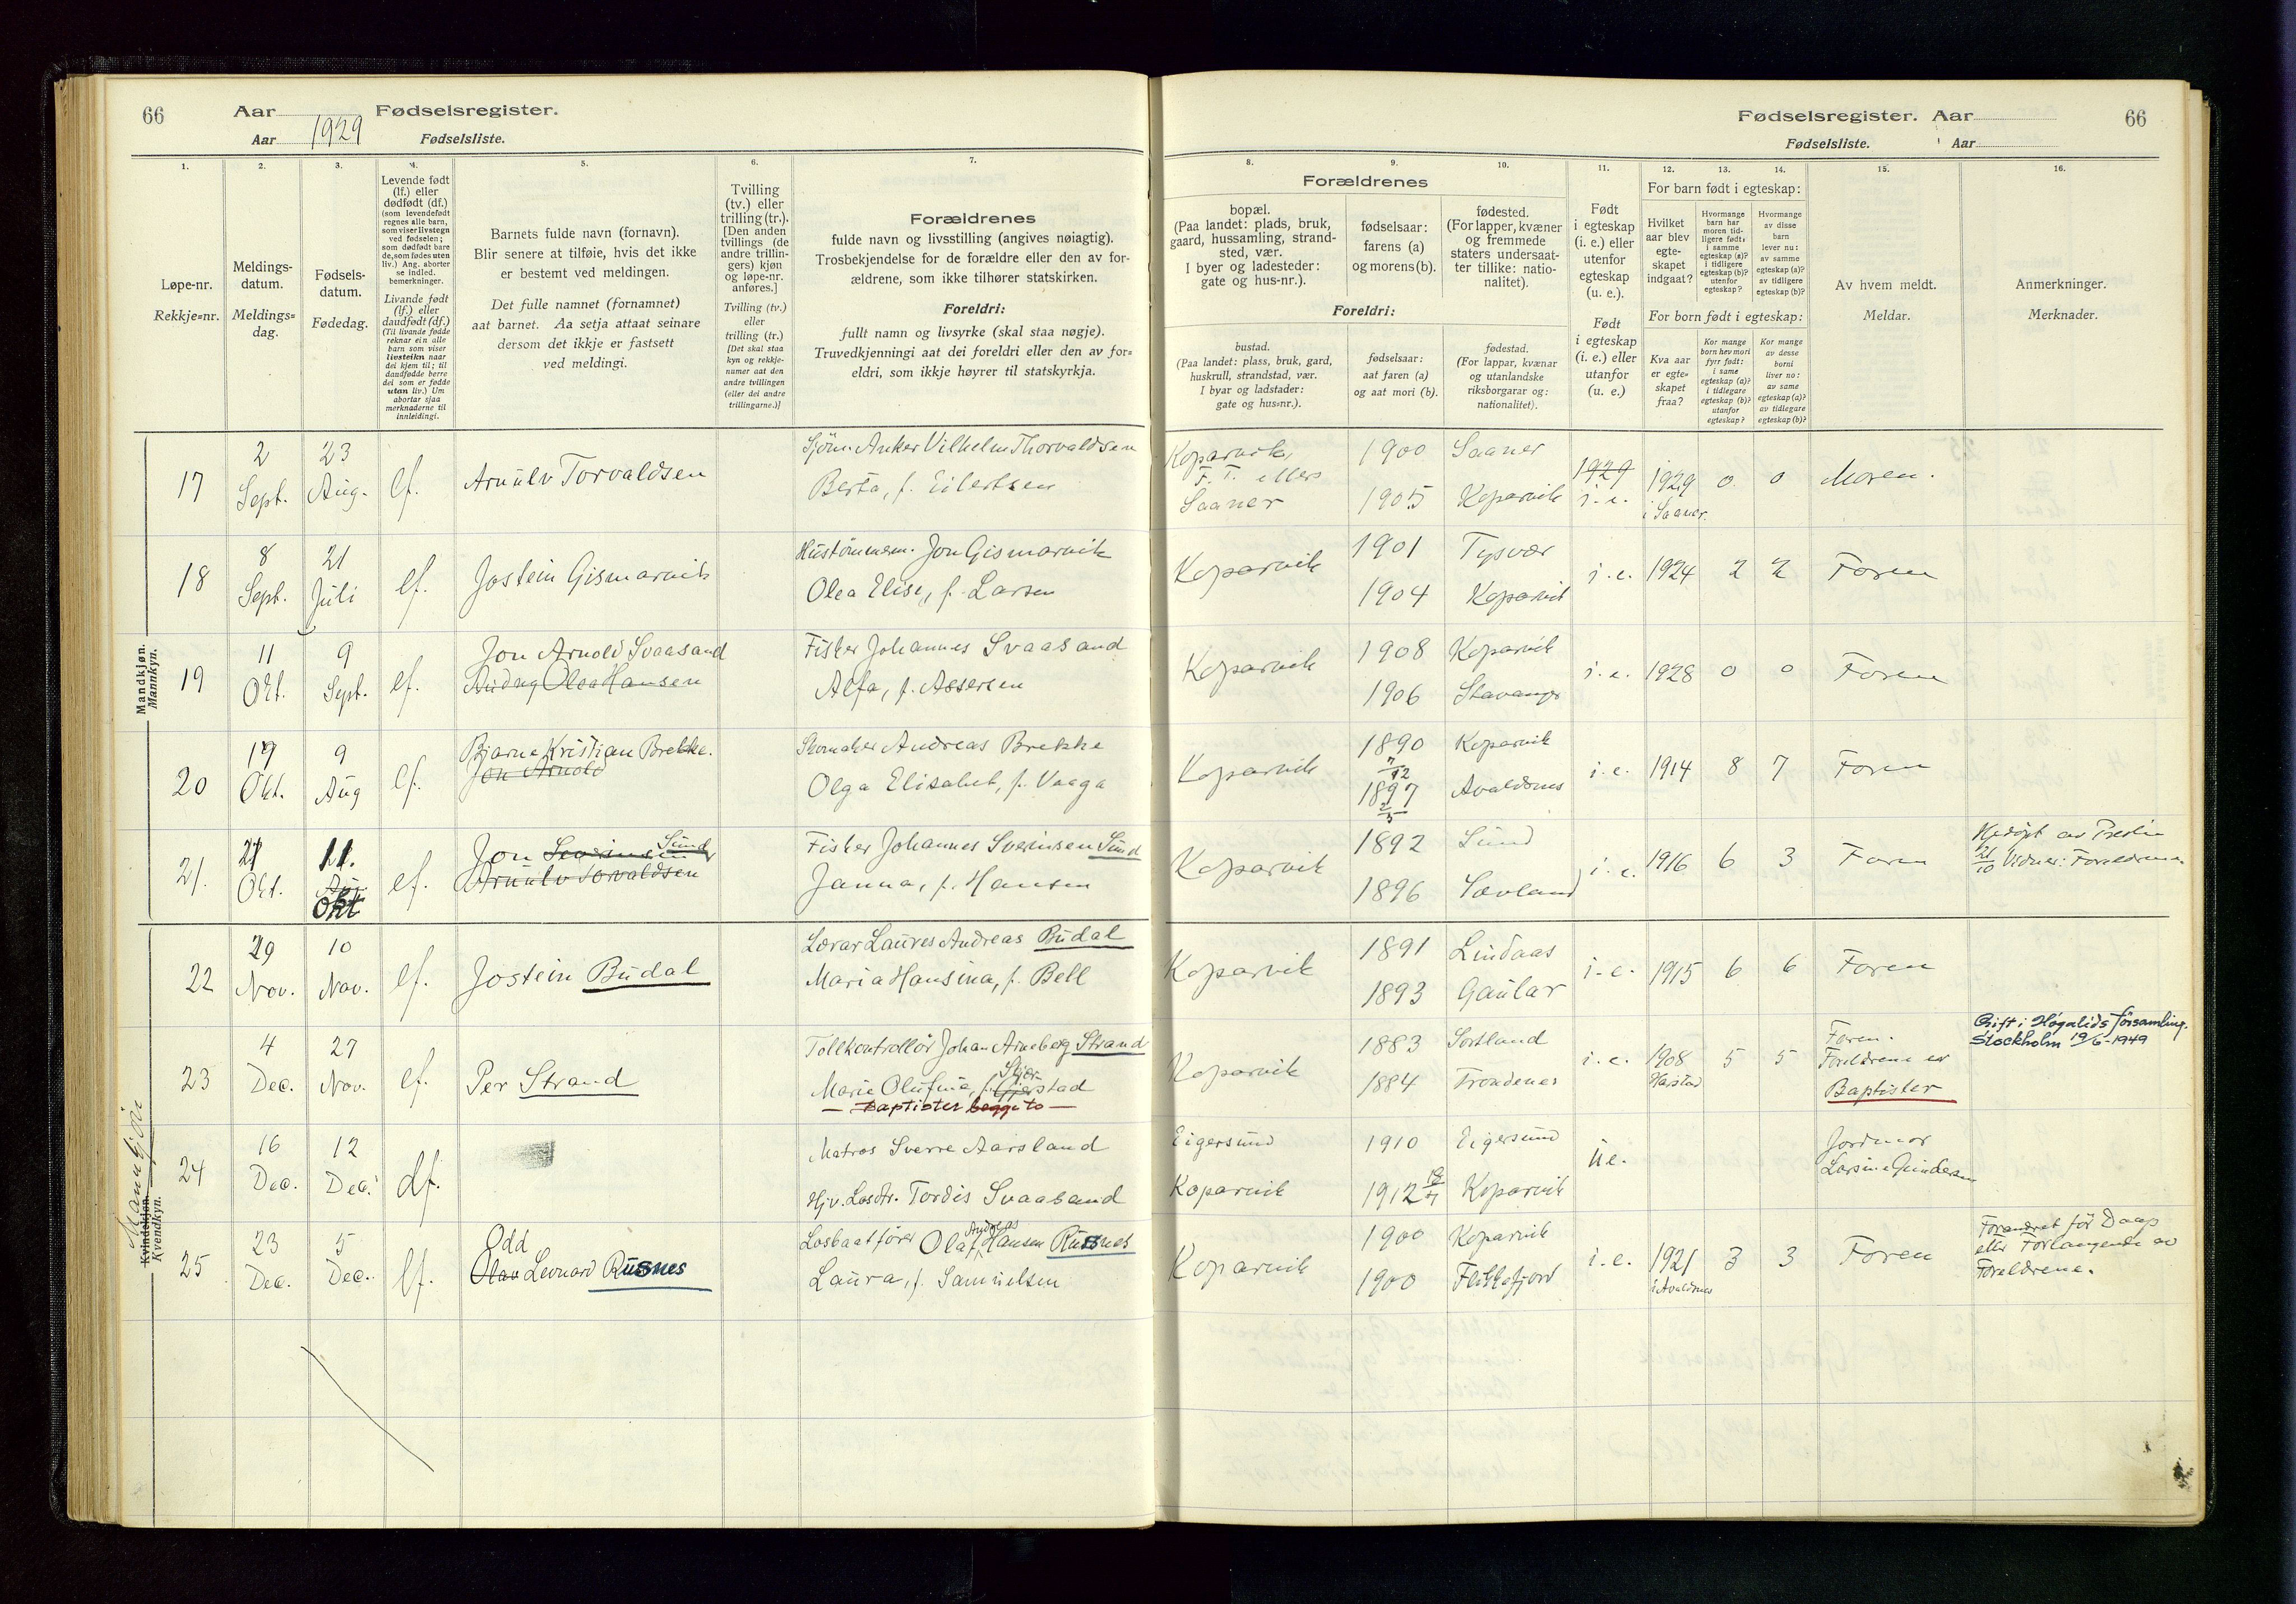 66
Aar
Fødselsregister.
Aar 1929
Fødselsliste.
1.
2.
3.
4.
5.
6.
7.
Løpe-nr.
Rekkje-nr.
Meldings-
datum.
Meldings-
dag.
Fødsels-
datum.
Fødedag.
Levende født
(lf.) eller
dødfødt (df.)
(som levendefødt
regnes alle barn,
som viser livstegn
ved fødselen;
som dødfødt bare
de, som fødes uten
liv.) Ang. aborter
se indled.
bemerkninger.
Livande født
(lf.) eller
daudfødt (df.)
(Til livande fødde
reknar ein alle
barn som viser
livsteikn naar
dei kjem til; til
daudfødde berre
dei som er fødde
utan liv.) Um
abortar sjaa
merknaderne til
innleidingi.
Barnets fulde navn (fornavn).
Blir senere at tilføie, hvis det ikke
er bestemt ved meldingen.
Det fulle namnet (fornamnet)
aat barnet. Aa setja attaat seinare
dersom det ikkje er fastsett
ved meldingi.
Tvilling
(tv.) eller
trilling (tr.).
[Den anden
tvillings (de
andre trillin-
gers) kjøn
og løpe-nr.
anføres.]
Tvilling (tv.)
eller
trilling (tr.)
[Det skal staa
kyn og rekkje-
numer aat den
andre tvillingen
(eller dei andre
trillingarne.)]
Forældrenes
fulde navn og livsstilling (angives nøiagtig).
Trosbekjendelse for de forældre eller den av for-
ældrene, som ikke tilhører statskirken.
Foreldri:
fullt namn og livsyrke (skal staa nøgje).
Truvedkjenningi aat dei foreldri eller den av for-
eldri, som ikkje høyrer til statskyrkja.
Fødselsregister. Aar
66
Fødselsliste.
Aar
8.
9.
10.
11.
12.
13.
14.
15.
16.
Forældrenes
bopæl.
(Paa landet: plads, bruk,
gaard, hussamling, strand-
sted, vær.
I byer og ladesteder:
gate og hus-nr.).
fødselsaar:
farens (a)
og morens (b).
fødested.
(For lapper, kvæner
og fremmede
staters undersaat-
ter tillike: natio-
nalitet).
Foreldri:
bustad.
(Paa landet: plass, bruk, gard,
huskrull, strandstad, vær.
I byar og ladstader:
gate og hus-nr.).
fødselsaar:
aat faren (a)
og aat mori (b).
fødestad.
(For lappar, kvænar
og utanlandske
riksborgarar og:
nationalitet).
Født
i egteskap
(i. e.) eller
utenfor
egteskap
(u. e.).
Født
i egteskap
(i. e.) eller
utanfor
(u. e.)
For barn født i egteskap:
Hvilket
aar blev
egte-
skapet
indgaat?
Hvormange
barn har
moren tid-
ligere født:
i samme
egteskap (a)?
i tidligere
egteskap (b)?
utenfor
egteskap?
Hvormange
av disse
barn
lever nu:
av samme
egteskap (a)?
av tidligere
egteskap (b)?
For born født i egteskap:
Kva aar
er egte-
skapet
fraa?
Kor mange
born hev mori
fyrr født:
i same
egteskap (a)?
i tidlegare
egteskap (b)?
utanfor
egteskap?
Kor mange
av desse
borni
liver no:
av same
egteskap (a)?
av tidlegare
egteskap (b)?
Av hvem meldt.
Meldar.
Anmerkninger.
Merknader.
Mandkjøn.
Mannkyn.
17
2 Sept.
23 Aug.
lf.
Arnulv Torvaldsen
Sjöm. Anker Vilhelm Thorvaldsen
Berta, f. Eilertsen
Koparvik,
F. T. ellers
Saaner
1900
Saaner
1905
Koparvik
1929
i. e.
1929
i Saaner.
0
0
Moren.
18
8 Sept.
21 Juli
lf.
Jostein Gismarvik
Hustömmerm. Jon Gismarvik
Olea Elise, f. Larsen
Koparvik
1901
Tysvær
1904
Koparvik
i. e.
1924
2
2
Faren
19
11 Okt.
9 Sept.
lf.
Jon Arnold Svaasand
Olea Hansen
Fisker Johannes Svaasand
Alfa, f. Assersen
Koparvik
1908
Koparvik
1906
Stavanger
i. e.
1928
0
0
Faren
20
19 Okt.
9 Aug
lf.
Bjarne Kristian Brekke.
Jon Arnold
Skomaker Andreas Brekke
Olga Elisabet, f. Vaaga
Koparvik
1890
7/12
Koparvik
1897
2/3
Avaldsnes
i. e.
1914
8
7
Faren
21.
21 Okt.
11. Okt
lf.
Jon Severinsen Sund
Arnulv Torvaldsen
Fisker Johannes Sverinsen Sund
Janna, f. Hansen
Koparvik
1892
Sund
1896
Sævland
i. e.
1916
6
3
Faren
Hjdöpt av Prestin
21/10 Vidner: Foreldrene
Mannkjön
Kvindekjøn.
Kvendkyn.
22
29 Nov.
10 Nov.
lf.
Jostein Budal
Lærar Laures Andreas Budal
Maria Hansina, f. Bell
Koparvik
1891
Lindaas
1893
Gaular
i. e.
1915
6
6
Faren
23
4 Dec.
27 Nov.
lf.
Per Strand
Tollkontrollör Johan Arneberg Strand
Marie Olufine, f. Skjærstad
— Baptister begge to —
Koparvik
1883
Sortland
1884
Trondenes
i. e.
1908
Harstad
5
5
Faren.
Foreldrene er
Baptister
Gift i Høgalids församling,
Stockholm 19/6-1949
24
16 Dec.
12 Dec.
df.
Matros Sverre Aarsland
Hjv. Losdtr. Tordis Svaasand
Eigersund
Koparvik
1910
Eigersund
1912
Koparvik
u e.
Jordmor
Larsine Gundersen
25
23 Dec.
5 Dec.
lf.
Odd
Olav Leonard Rusnes
Losbaatfører Olaf Andreas Hansen Rusnes
Laura, f. Samuelsen
Koparvik
1900
Koparvik
1900
Flekkefjord
i. e.
1921
i Avaldsnes
3
3
Faren
Forandret för Daap
efter Forlangende av
Foreldrene.